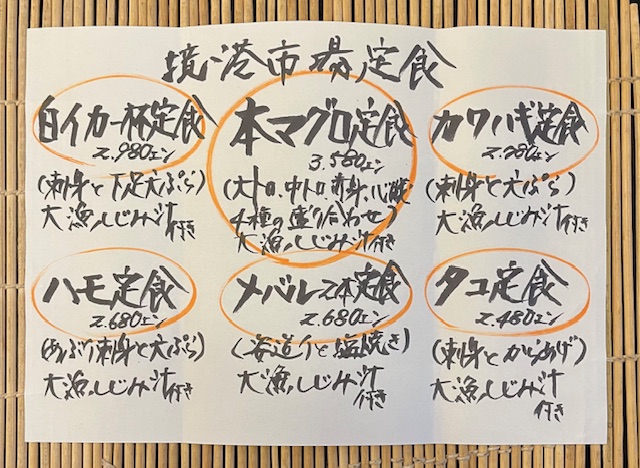 境港市場定食
白イカ一杯定食
2.980エン
(刺身と下足天ぷら)
大漁しじみ汁付き
本マグロ定食
3.580エン
(大トロ、中トロ、赤身、心臓
4種の盛り合わせ)
大漁しじみ汁付き
カワハギ定食
2.780エン
(刺身と天ぷら)
大漁しじみ汁付き
ハモ定食
2.680エン
(あぶり刺身と天ぷら)
大漁しじみ汁付き
メバル2本定食
2.680エン
(姿造りと塩焼き)
大漁しじみ汁付き
タコ定食
2.480エン
(刺身とからあげ)
大漁しじみ汁付き